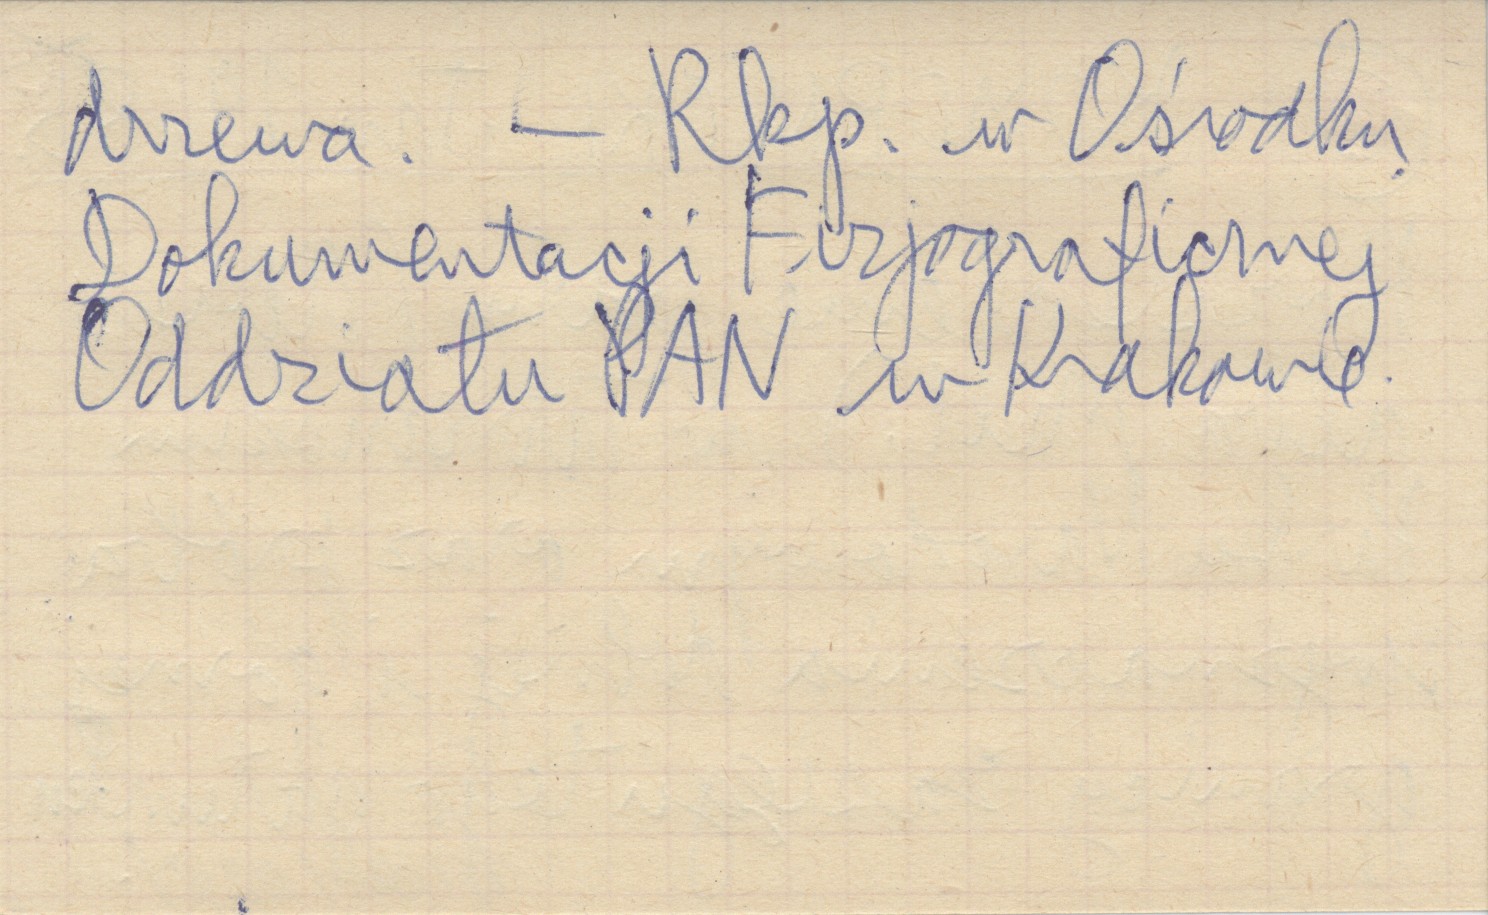 drzewa. — Rkp. w Ośrodku
Dokumentacji Fizjograficznej
Oddziału PAN w Krakowie.